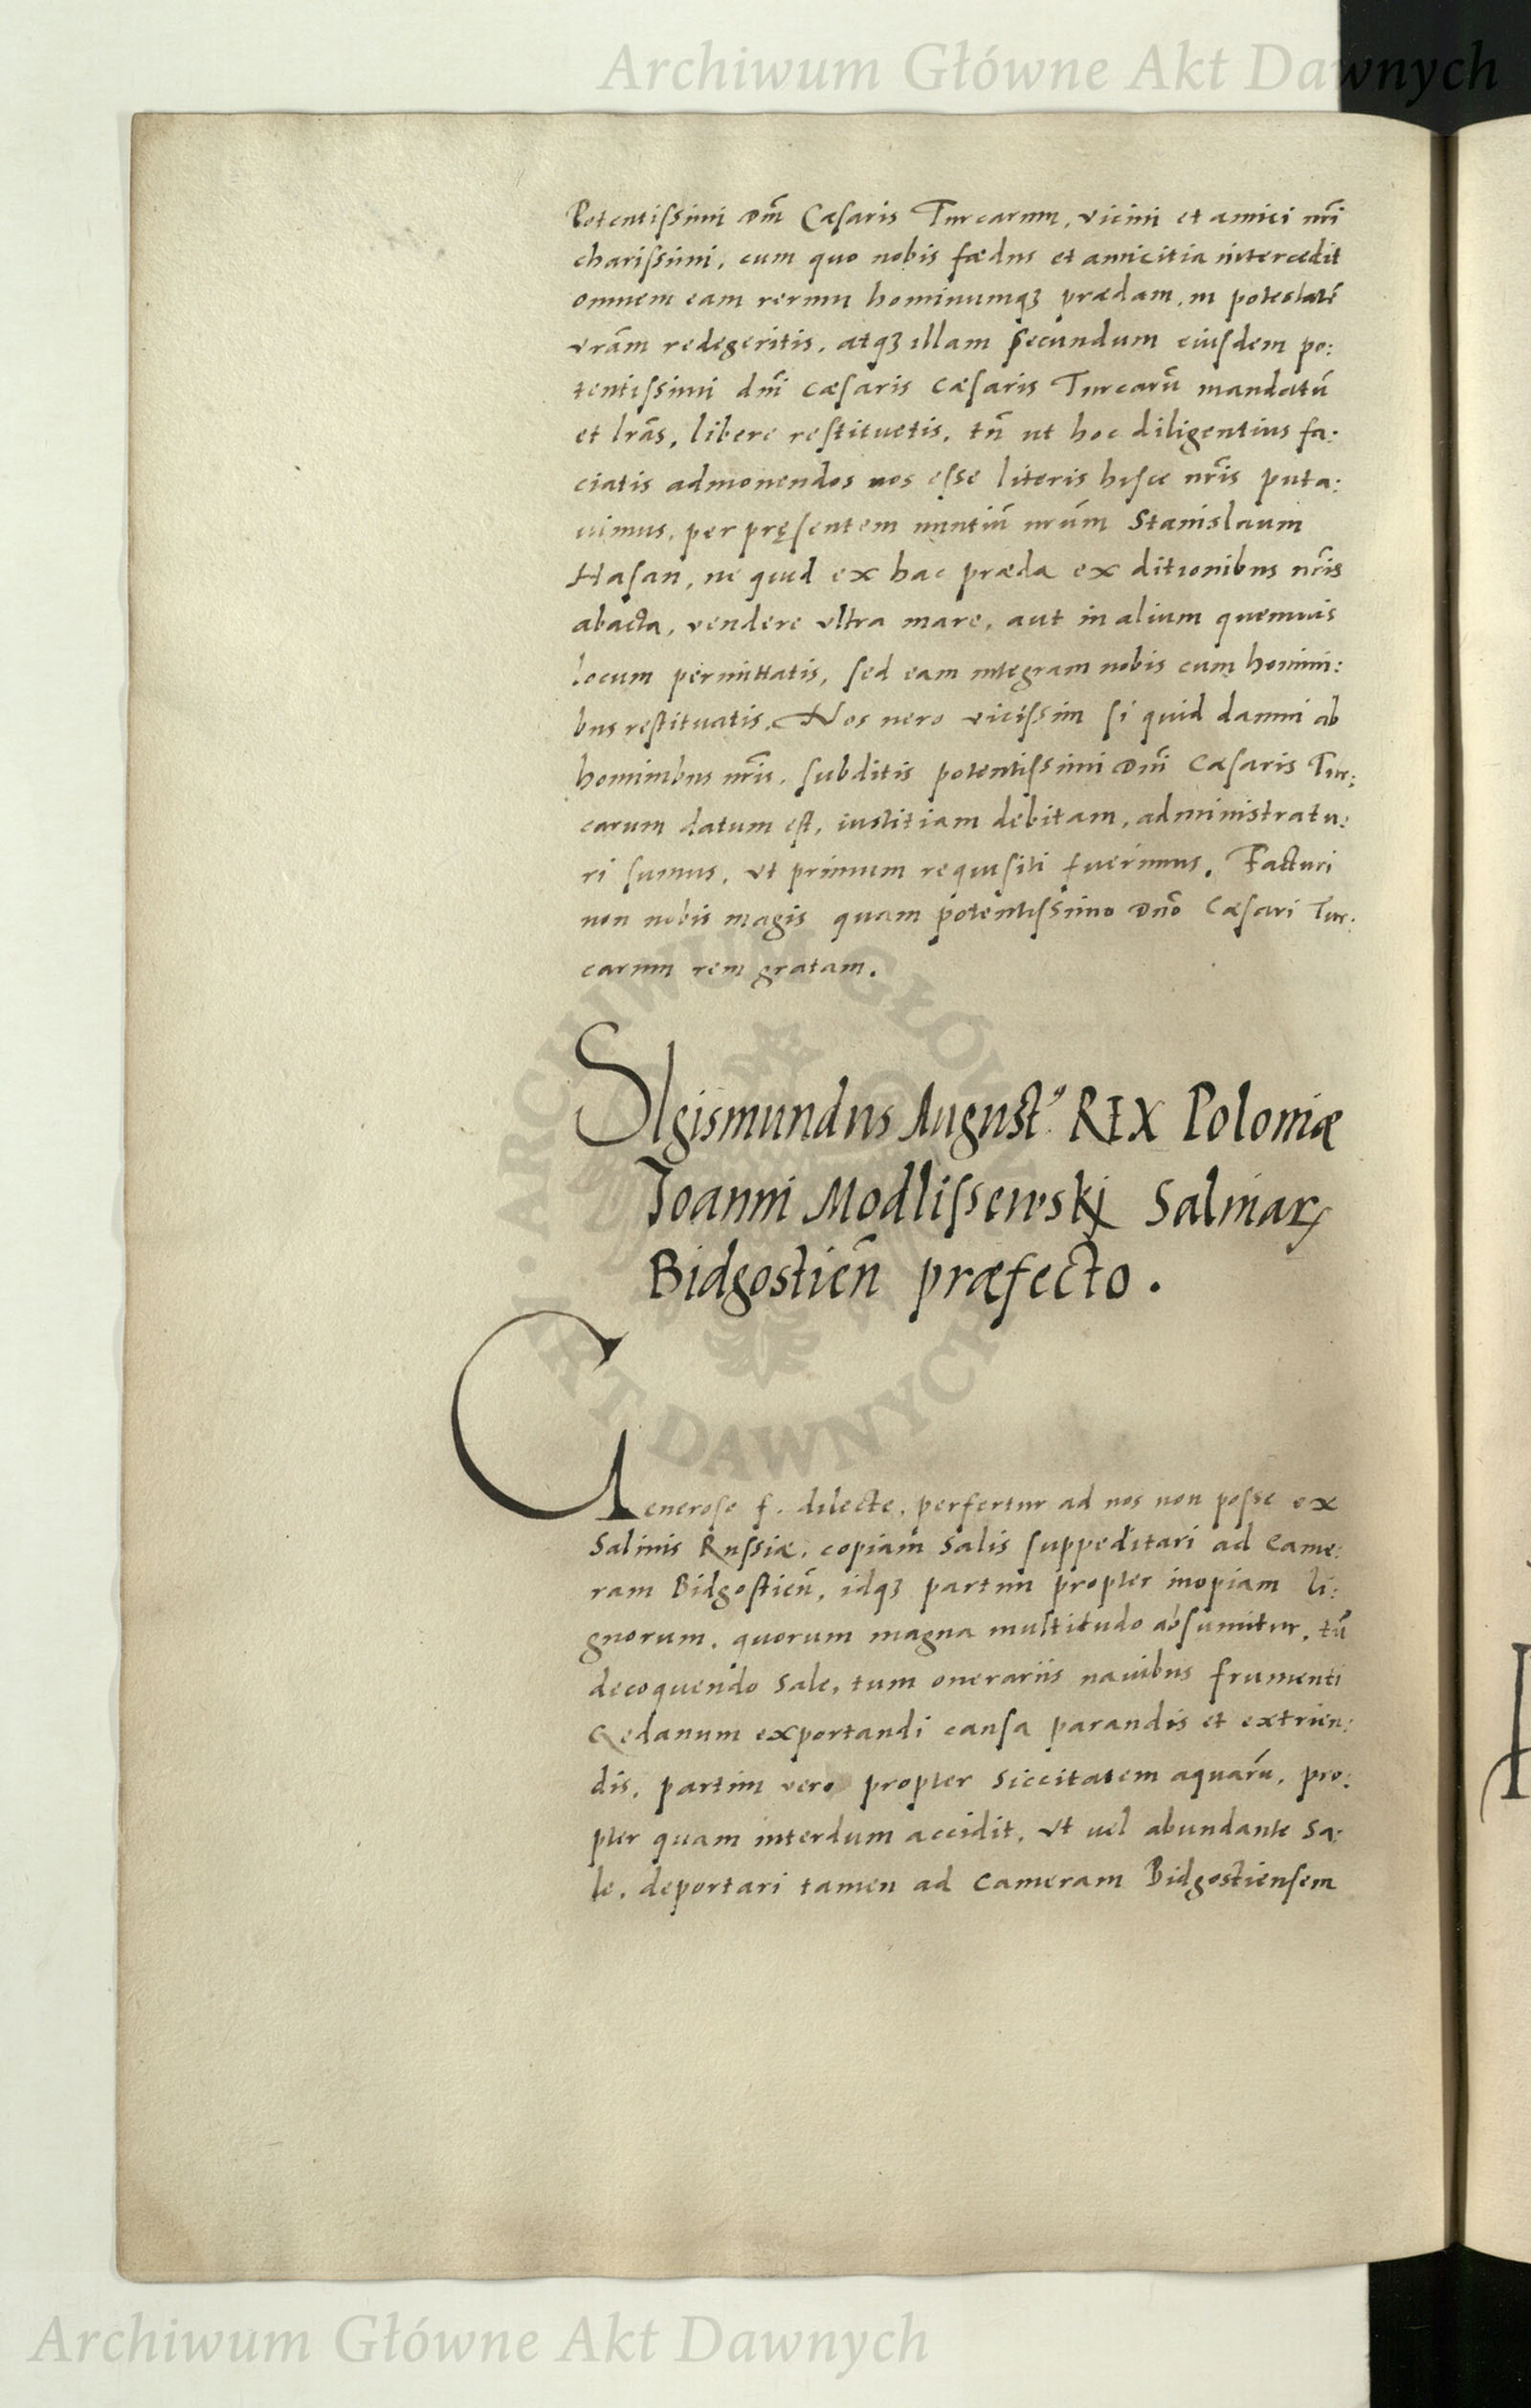 Archiwum Główne Akt Dawnych
Potentissimi Dnĩ Cæsaris Turcarum, vicini et amici nrĩ
charissimi, cum quo nobis fædus et amicitia intercedit
omnem eam rerum hominumqꝫ prædam, in potestatẽ
vrãm redegeritis, atqꝫ illam secundum eiusdem po:
tentissimi dnĩ cæsaris cæsaris Turcarũ mandatũ
et lrãs, libere restituetis, tñ ut hoc diligentius fa:
ciatis admonendos uos esse literis hisce nrĩs puta:
uimus, per pręsentem nuntiũ nrũm Stanislaum
Hasan, ne quid ex hac præda ex ditionibus nrĩs
abacta, vendere vltra mare, aut in alium quemuis
locum permittatis, sed eam integram nobis cum homini:
bus restituatis. Nos uero vicissim si quid damni ab
hominibus nrĩs, subditis potentissimi Dnĩ Cæsaris Tur:
carum datum est, iustitiam debitam, administratu:
ri sumus, vt primum requisiti fuerimus. Facturi
non nobis magis quam potentissimo Dnõ Cæsari Tur:
carum rem gratam.
SIgismundus August⁹ REX Poloniæ
Joanni Modlissewskj Salinarꝝ
Bidgostieñ præfecto.
Generose f. dilecte, perfertur ad nos non posse ex
Salinis Russiæ, copiam Salis suppeditari ad Came:
ram Bidgostieñ, idqꝫ partim propter inopiam li:
gnorum, quorum magna multitudo absumitur, tũ
decoquendo Sale, tum onerariis nauibus frumenti
Gedanum exportandi causa parandis et extruen:
dis, partim vero propter Siccitatem aquarũ, pro:
pter quam interdum accidit, vt uel abundante Sa:
le, deportari tamen ad Cameram Bidgostiensem
ARCHIWUM GŁÓWNE AKT DAWNYCH
Archiwum Główne Akt Dawnych